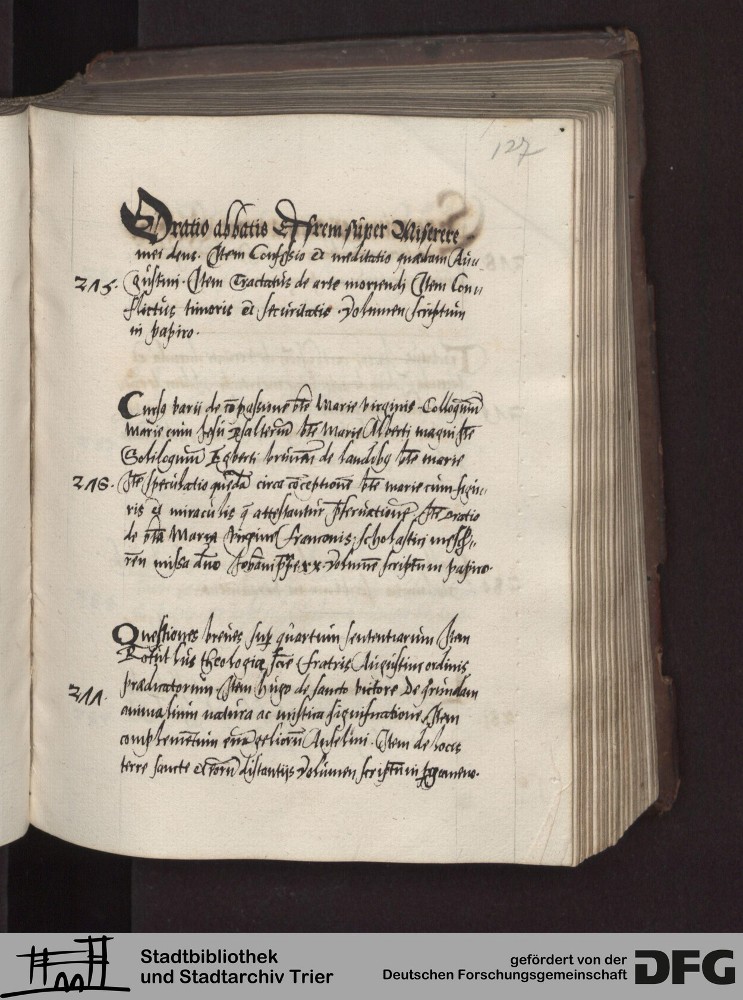 127
Oratio abbatis Effrem super Miserere
mei deus. Item Confessio et meditatio quædam Au„
215. gustini. Item Tractatus de arte moriendi Item Con„
flictus timoris et securitatis. Volumen scriptum
in papiro.
Cursq varii de cōpassione bte Marie virginis. Colloquiū
Marie cum Jesu psalteriū bte Marie Alberti magni Ite
Soliloquiū Egberti de laudibq bte marie
216. Ite speculatio quedā circa cōceptionē bte marie cum figu„
ris et miraculis q attestantur Ite oratio
de bta Maria Virgine franconis, scholastici
missa Volumē scriptū in papiro.
Questiones breues sup quartum sententiarum Item
theologiæ fratris Augustini ordinis
217. prædicatorum Item hugo de sancto victore De
animalium natura ac mistica significatione Item
complementum Anselmi. Item de locis
terre sancte et eorū distantijs Volumen scriptū in pgameno.
Stadtbibliothek
und Stadtarchiv Trier
gefördert von der
Deutschen Forschungsgemeinschaft
DFG